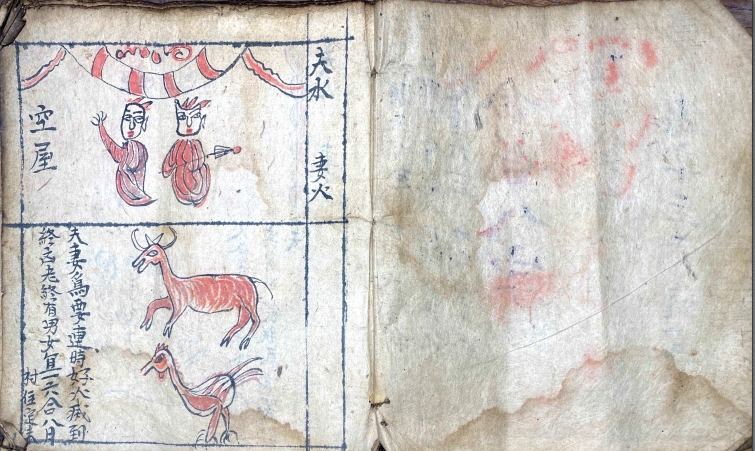 夫水
妻火
空屋
夫妻為要連時好火感到
終言老終有男女且一六合八月
村住